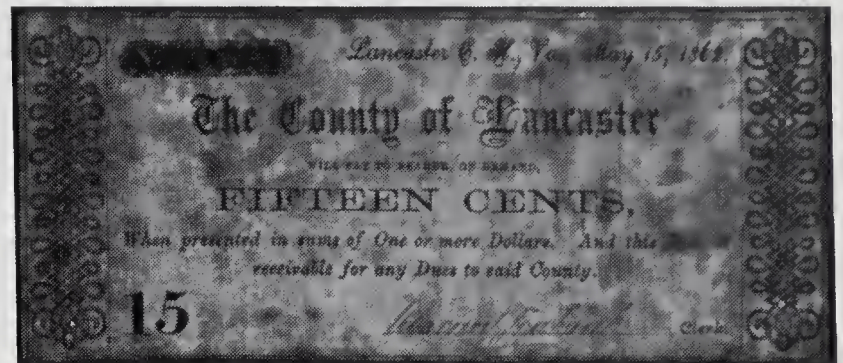 Lancaster C. H., Va., May 15, 1862.
The County of Lancaster
WILL PAY TO BEARER, ON DEMAND,
FIFTEEN CENTS,
When presented in sums of One or more Dollars. And this
receivable for any Dues to said County.
15 Clerk.